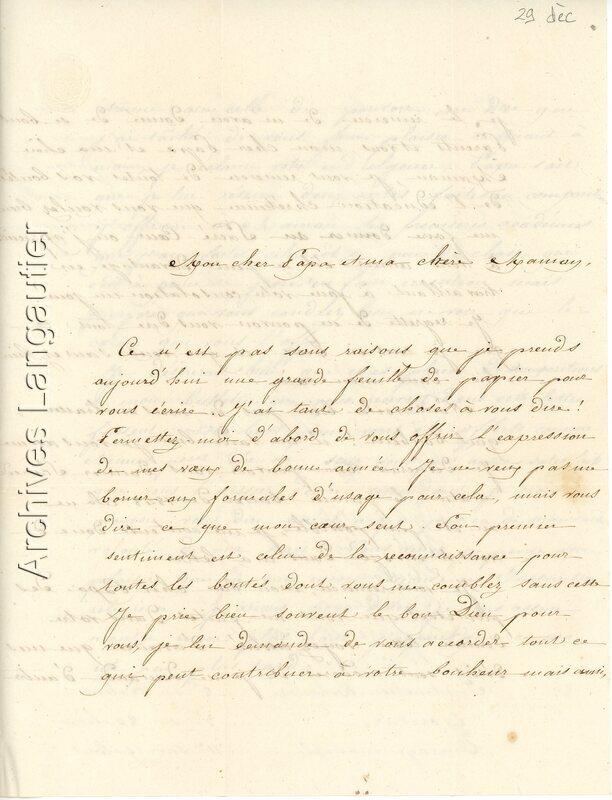 29 déc
Mon cher Papa et ma chère Maman,
Ce n'est pas sans raisons que je prends
aujourd'hui une grande feuille de papier pour
vous écrire. J'ai tant de choses à vous dire!
Permettez-moi d'abord de vous offrir l'expression
de mes vœux de bonne année! Je ne veux pas me
borner aux formules d'usage pour cela, mais vous
dire ce que mon cœur sent. Son premier
sentiment est celui de la reconnaissance pour
toutes les bontés dont vous me comblez sans cesse
Je prie bien souvent le bon Dieu pour
vous, je lui demande de vous accorder tout ce
qui peut contribuer à votre bonheur mais aussi,
Archives Langautier